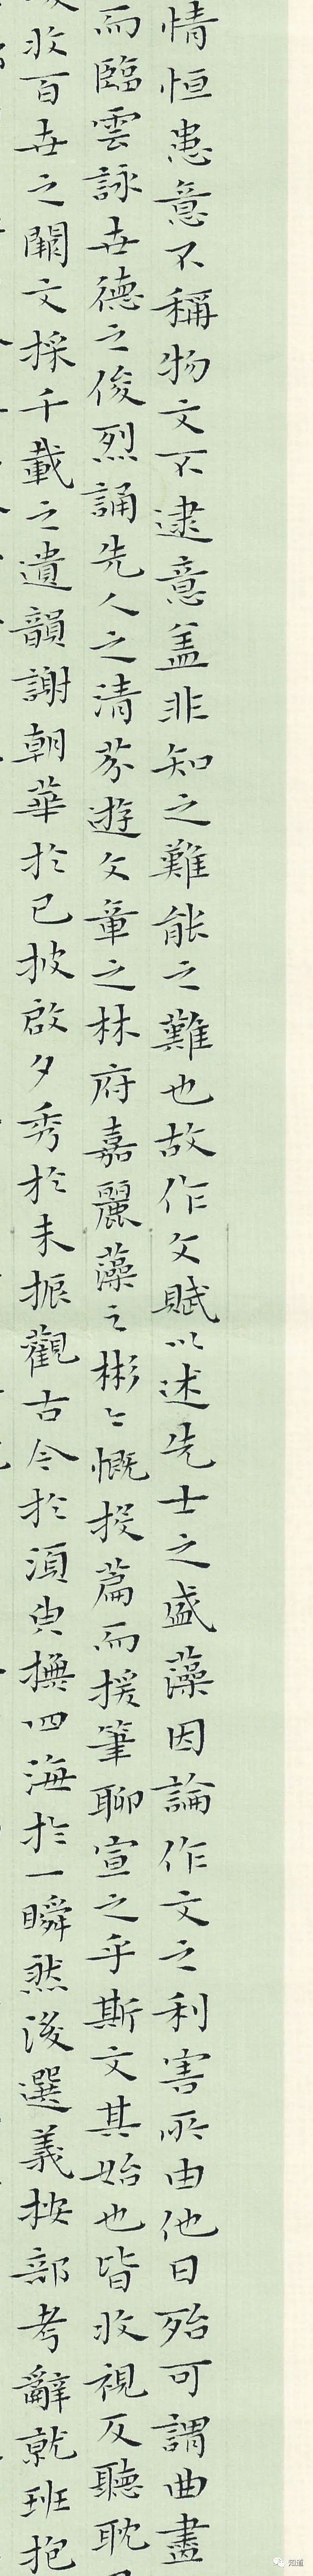 情恒患意不稱物文不逮意盖非知之難能之難也故作文賦以述先士之盛藻因論作文之利害所由他日殆可謂曲盡
而臨雲詠世德之俊烈誦先人之清芬遊文章之林府嘉麗藻之彬々慨投篇而援筆聊宣之乎斯文其始也皆收視反聽耽
收百世之闕文採千載之遺韻謝朝華於已披啟夕秀於未振觀古今於須臾撫四海於一瞬然後選義按部考辭就班抱